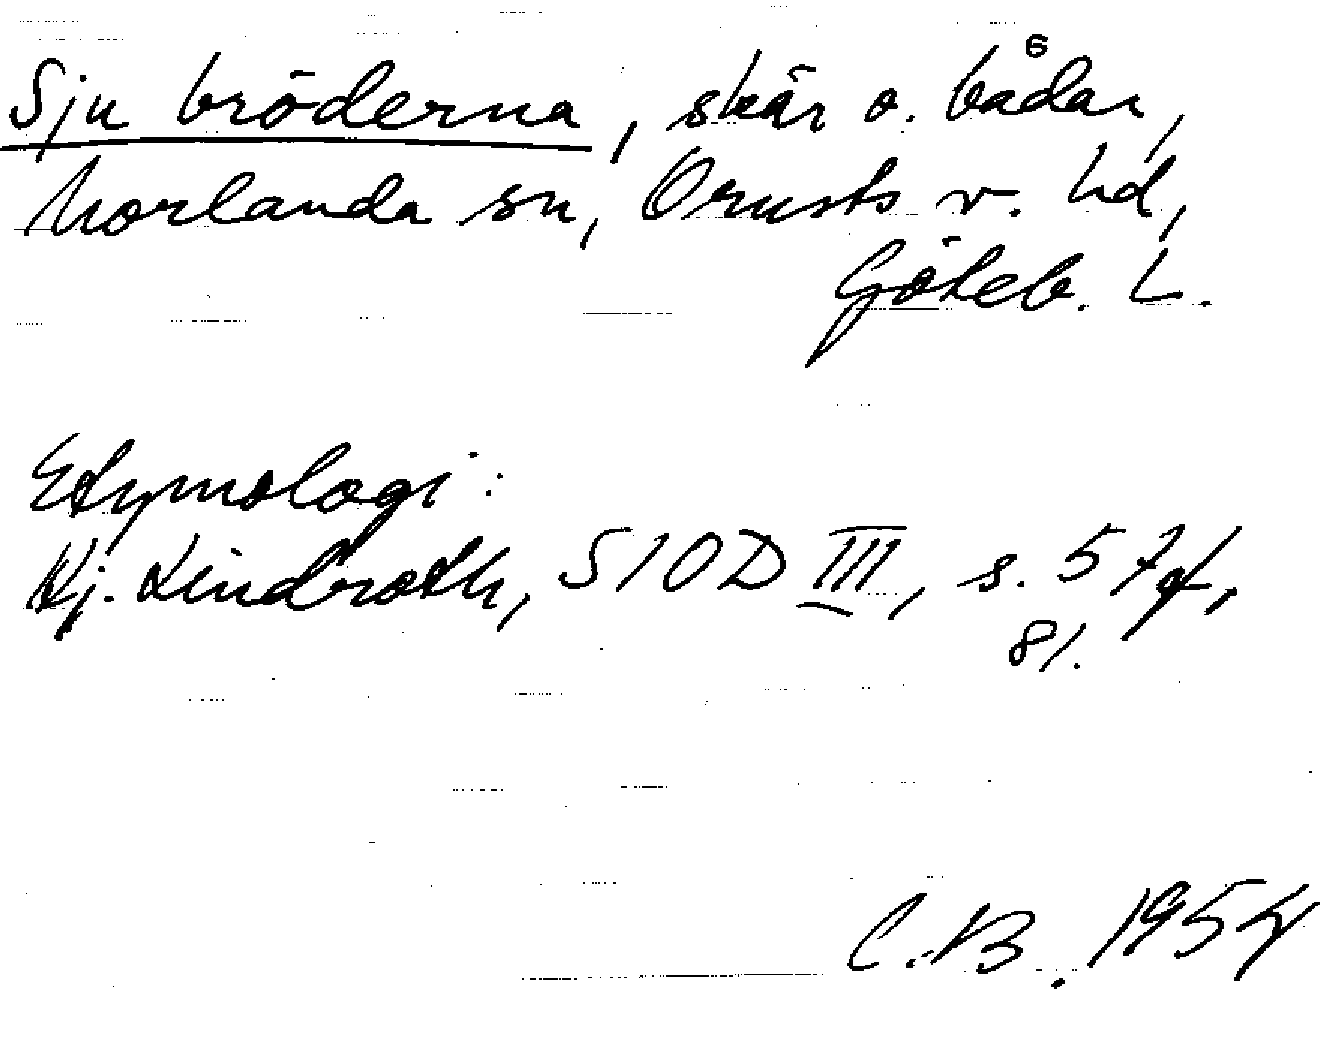 Sju bröderna, skär o. bådar,
Morlanda sn, Orusts v. hd,
Göteb. L.
Etymologi:
Hj. Lindroth, SIOD III, s. 57 f,
81.
C.B. 1954